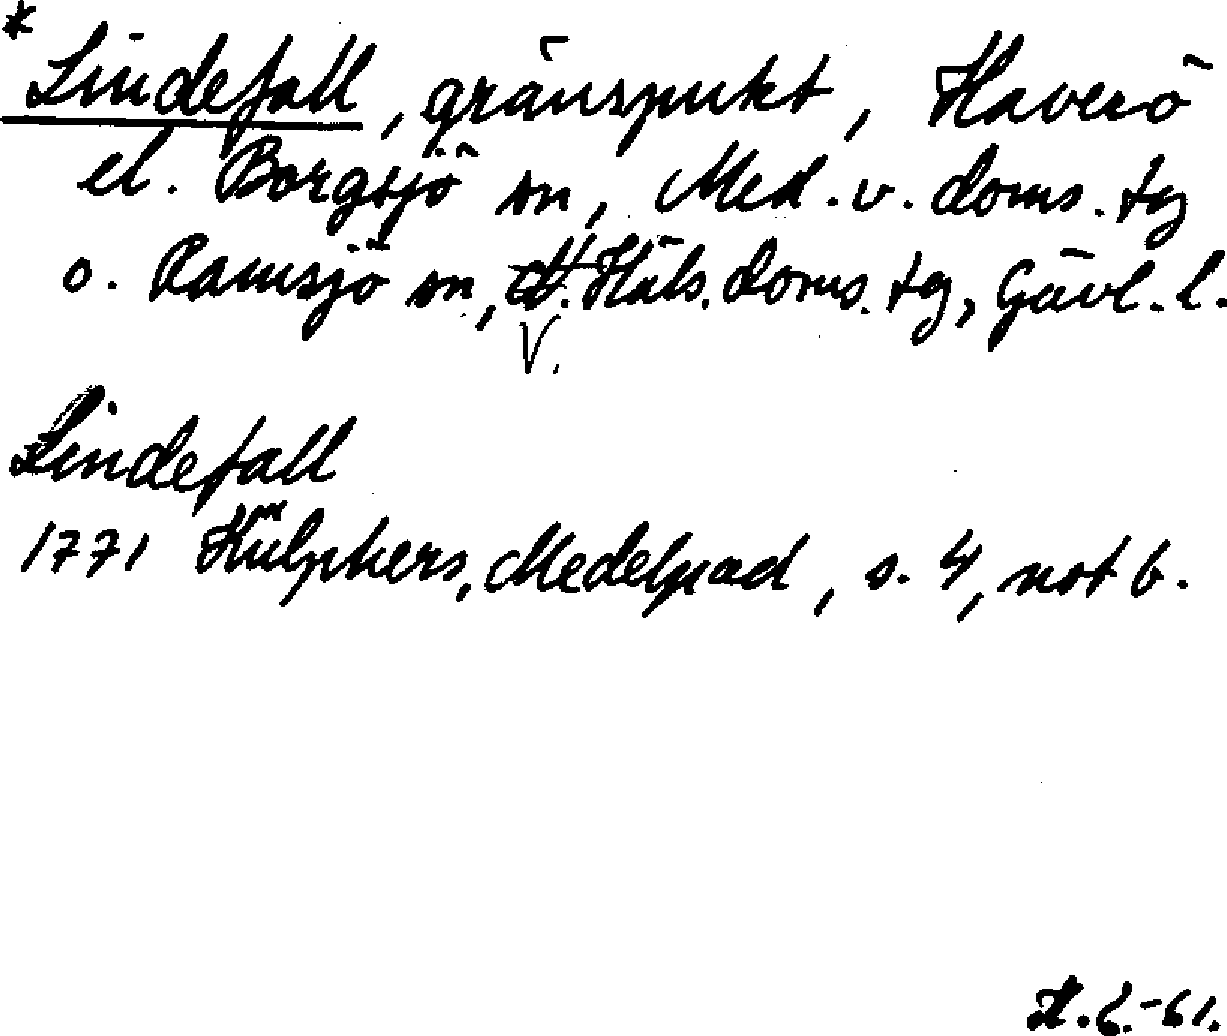 * Lindefall, gränspukt, Haverö
el. Borgsjö sn, Med. v. doms. tg
o. Ramsjö sn, V. Häls. doms. tg, Gävl. l.
Lindefall
1771 Hülphers, Medelpad, s. 4, not b.
H. L. -61.